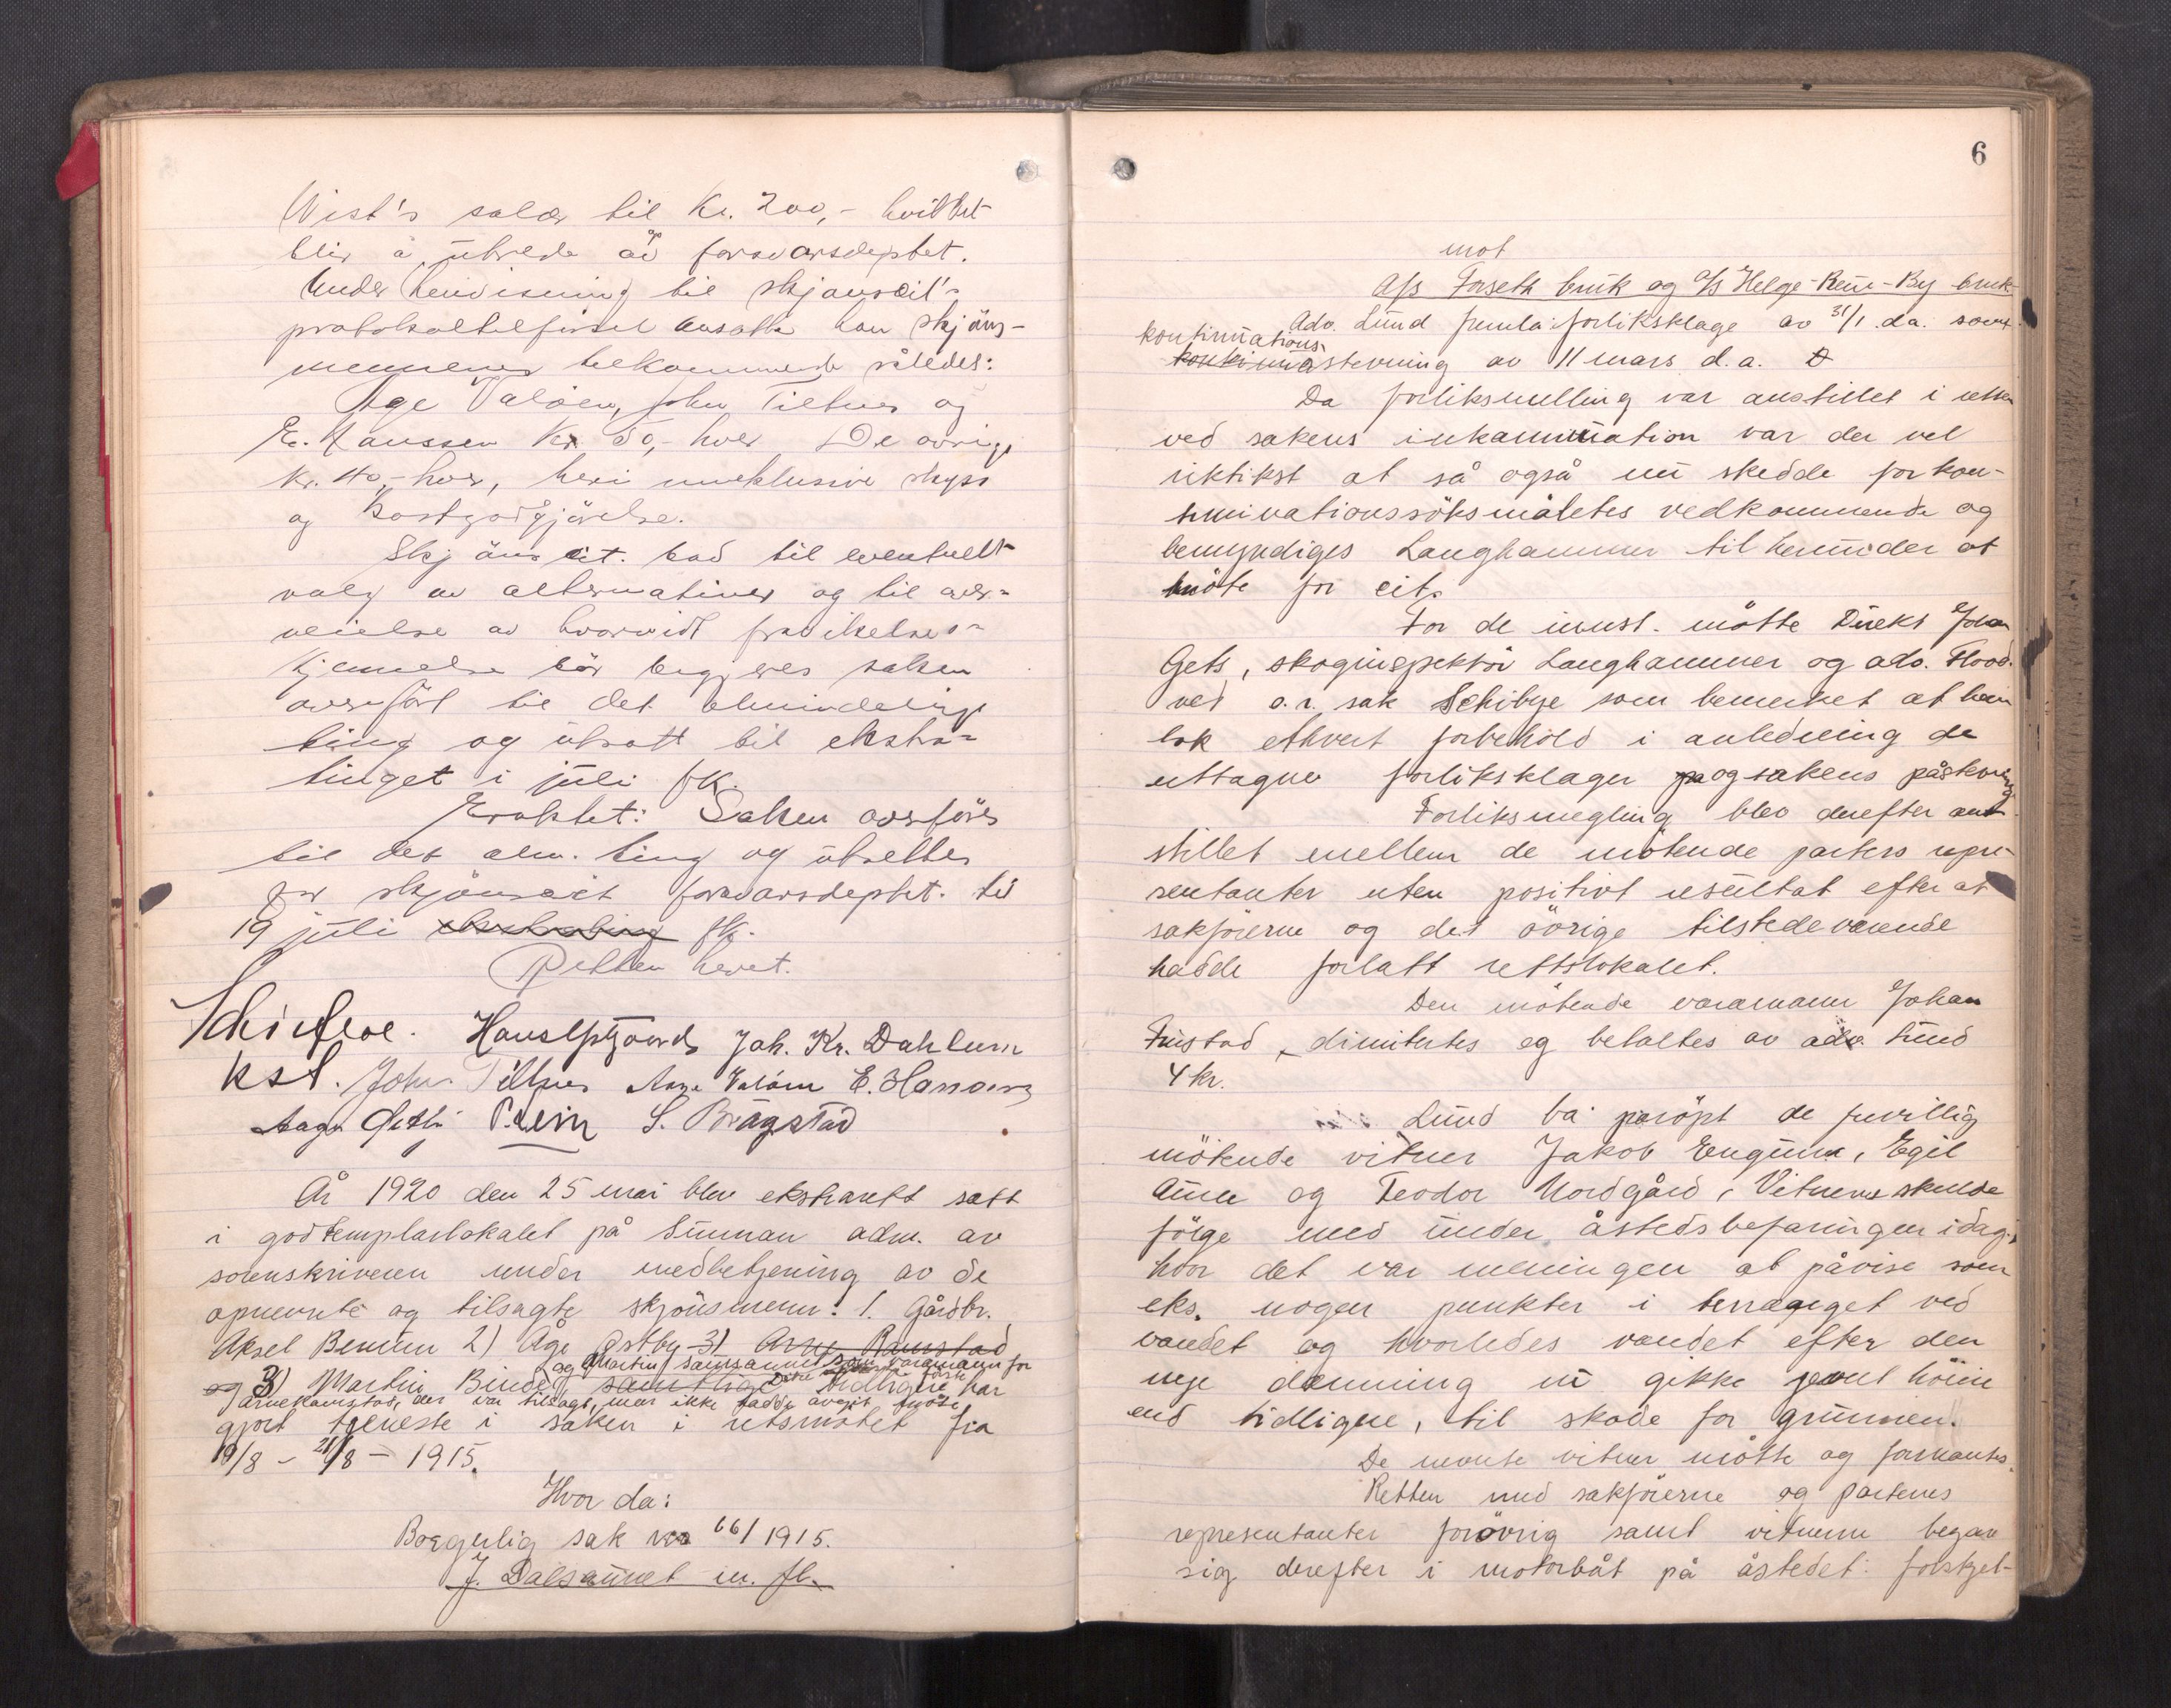 Wist's salær til Kr. 200,- hvilket
blir å utrede av forsvarsdeptet.
Under henvisning til skjønscit's
protokoltilførsel ansatte han skjøns-
mennenes tilkommende således:
Åge Valöen, John Tiltnes og
E. Hanssen Kr. 50,- hver De øvrige
kr. 40,- hver, heri inneklusive skyss
og kostgodgjörelse.
Skjöns cit. bad til eventuelt
valg av alternativer og til over-
veielse av hvorvidt fravikelses-
kjennelse bör begjæres saken
overfört til det almindelige
ting og utsatt til ekstra-
tinget i juli fk.
Eraktet: Saken overföres
til det alm. ting og utsettes
for skjönscit forsvarsdeptet. til
19 juli ekstrating fk.
Retten hevet.
Jak. Kr. Dahlum
Kst. John Tiltnes Aage Valöen E. Hanssen
Aage P. Lein S. Brägstad
År 1920 den 25 mai blev ekstrarett satt
i godtemplarlokalet på Sunnan adm. av
sorenskriveren under medbetjening av de
opnevnte og tilsagte skjönsmenn: 1. Gårdbr.
Aksel Benum 2) Åge Østby 3) Arne Ramstad
og Martin Saursaunet som varamann for
og 3) Martin Binde samtlige tidligere har
Arne Ramstad, der var tilsagt, men ikke hadde avgit möte
gjort tjeneste i saken i retsmötet fra
19/8 - 21/8 - 1915.
Hvor da:
Borgerlig sak 66/1915.
J. Dalsaunet m. fl.
6
mot
A/s Forseth bruk og A/s Helge-Rein-By bruk
Adv. Lund fremla: forliksklage av 31/1 d.a. samt
kontinuations
kontinuastevning av 11 mars d.a. D
Da forliksmelling var anstillet i retten
ved sakens inkamination var det vel
riktikst at så også nu skedde for kon-
tinuationssöksmåletes vedkommende og
bemyndiges Langhammer til herunder at
möte for cit.
For de innst. mötte Direkt Johan
Gets, skoginspektör Langhammer og adv. Flood.
ved o.r. sak Schibye som bemerket at han
tok ethvert forbehold i anledning de
uttagne forliksklager pa og sakens påstevning
Forliksmegling blev derefter an-
stillet mellem de mötende parters repre-
sentanter uten positivt resultat efter at
sakförerne og det övrige tilstedeværende
hadde forlatt rettslokalet.
Den mötende varamann Johan
Fuistad dimitertes og betaltes av adv. Lund
4 kr.
Lund ba påröpt de frivillig
mötende vitner Jakob Engum, Egil
Aune og Teodor Nordgård, Vitnene skulde
fölge med under åstedsbefaringen idag,
hvor det var meningen at påvise som
eks. nogen punkter i terrænget ved
vandet og hvorledes vandet efter den
nye demning nu gikk jevnt höiere
end tidligere, til skade for grunnen.
De nevnte vitner mötte og formantes.
Retten med sakförerne og partenes
representanter forövrig samt vitnene begav
sig derefter i motorbåt på åstedet: